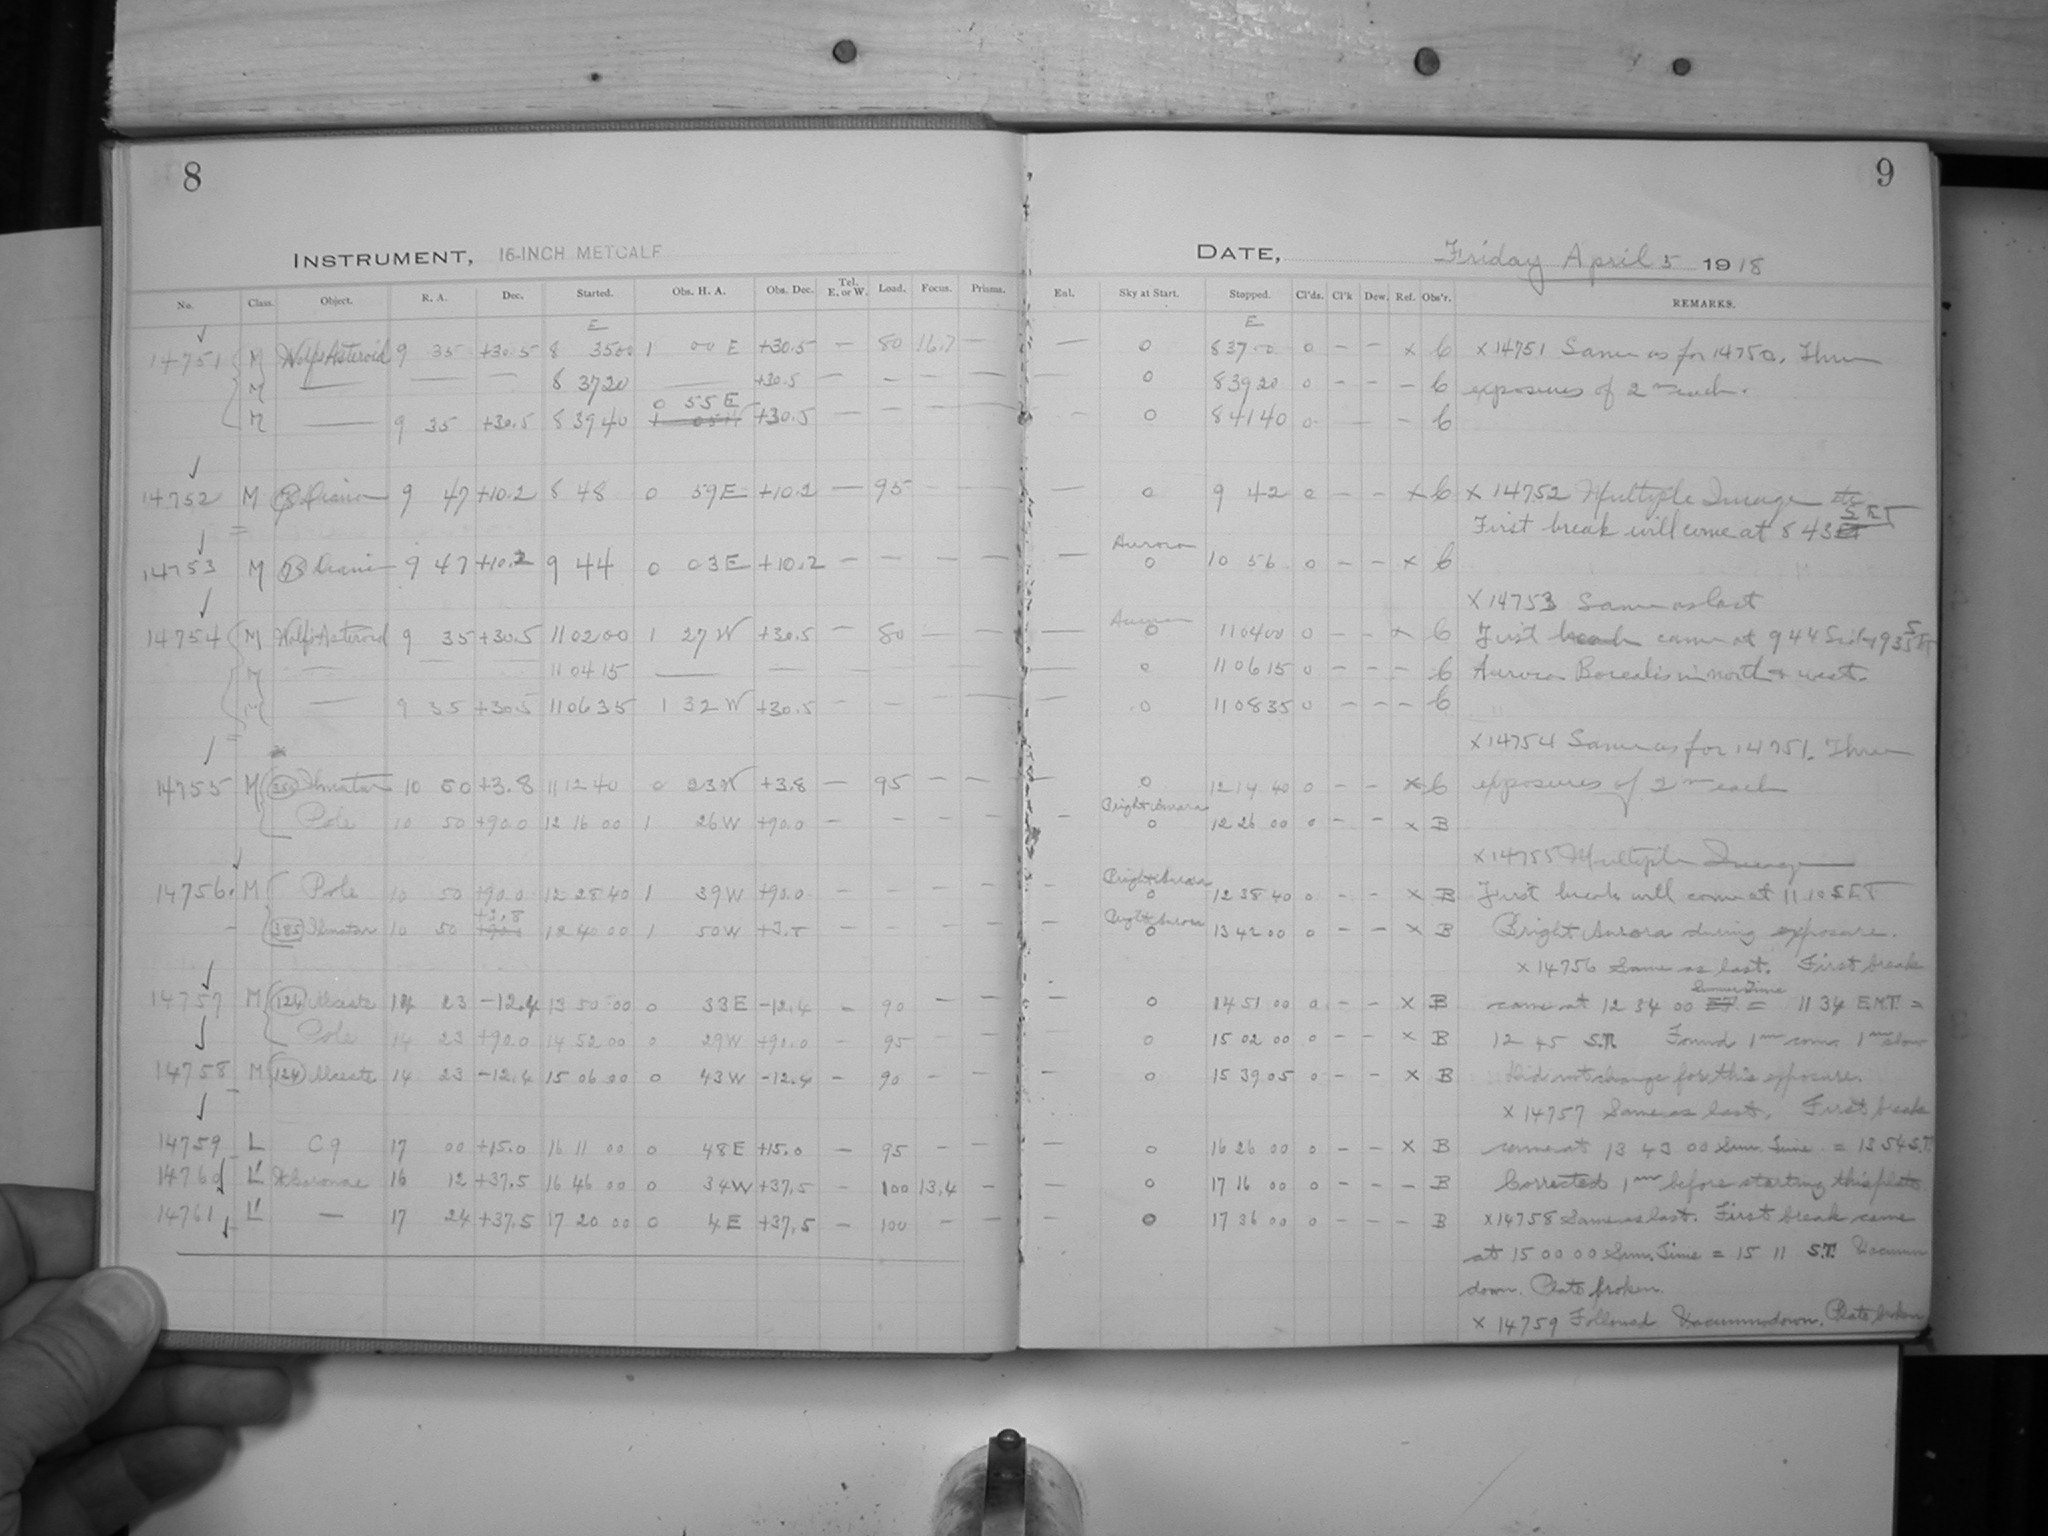 8
9
INSTRUMENT, 16-INCH METCALF
DATE, Friday April 5 1918
No. Class. Object. R. A. Dec. Started. Obs. H. A. Obs. Dec. Tel. E. or W. Load. Focus. Prisms.
Enl. Sky at Start. Stopped. Cl'ds. Cl'k Dew. Ref. Obs'r. REMARKS.
E
E
14751 M Wolf's Asteroid 9 35 +30.5 8 3500 1 00 E +30.5 — 80 16.7 —
— 0 83700 0 — — x C x 14751 Same as for 14750. Three
M — — — 8 3720 — +30.5 — — — —
0 83920 0 — — — C exposures of 2 m each.
0 55 E
M — 9 35 +30.5 8 3940 +30.5 — — — —
— 0 84140 0 — — C
14752 M 78 Diana 9 47 +10.2 8 48 0 59 E +10.2 — 95 — —
— 0 9 42 0 — — x C x 14752 Multiple Image
First break will come at 8 43 S ET
14753 M 78 Diana 9 47 +10.2 9 44 0 03 E +10.2 — — — —
— Aurora 0 10 56 0 — — x C
x 14753 Same as last
14754 M Wolf's Asteroid 9 35 +30.5 110200 1 27 W +30.5 — 80 — —
— Aurora 0 110400 0 — — x C First break came at 9 44 Sid
M — — — 110415 — — — — — —
— 0 110615 0 — — — C Aurora Borealis in north & west.
M — 9 35 +30.5 110635 1 32 W +30.5 — — — —
— 0 110835 0 — — — C
x 14754 Same as for 14751. Three
14755 M Ilmatar 10 50 +3.8 111240 0 23 W +3.8 — 95 — — —
0 12 14 40 0 — — x C exposures of 2 m each
Pole 10 50 +90.0 12 16 00 1 26 W +90.0 — — — —
— Bright Aurora 0 12 26 00 0 — — x B
x 14755 Multiple Image
14756 M Pole 10 50 +90.0 12 28 40 1 39 W +90.0 — — — —
— Bright Aurora 0 12 38 40 0 — — x B First break will come at 11 10 S ET
385 Ilmatar 10 50 +3.8 12 40 00 1 50 W — — — —
— Bright Aurora 0 13 42 00 0 — — x B Bright Aurora during exposure.
x 14756 Same as last. First break
14757 M 124 Alceste 14 23 -12.4 13 50 00 0 33 E -12.4 — 90 — —
— 0 14 51 00 0 — — x B came at 12 34 00 Summer Time = 11 34 E.M.T. =
Pole 14 23 +90.0 14 52 00 0 29 W +90.0 — 95 — —
— 0 15 02 00 0 — — x B 12 45 S.T. Found 1 m 1 m slow
14758 M 124 Alceste 14 23 -12.4 15 06 00 0 43 W -12.4 — 90 — —
— 0 15 39 05 0 — — x B Did not change for this exposure.
x 14757 Same as last. First break
14759 L C 9 17 00 +15.0 16 11 00 0 48 E +15.0 — 95 — —
— 0 16 26 00 0 — — x B came at 13 43 00 Sum. Time = 13 54 S.T.
14760 L' Coronae 16 12 +37.5 16 46 00 0 34 W +37.5 — 100 13.4 —
— 0 17 16 00 0 — — — B Corrected 1 m before starting this plate.
14761 L' — 17 24 +37.5 17 20 00 0 4 E +37.5 — 100 — —
— 0 17 36 00 0 — — — B x 14758 Same as last. First break came
at 15 00 00 Sum. Time = 15 11 S.T. Vacuum
down. Plate broken.
x 14759 Followed Vacuum down. Plate broken